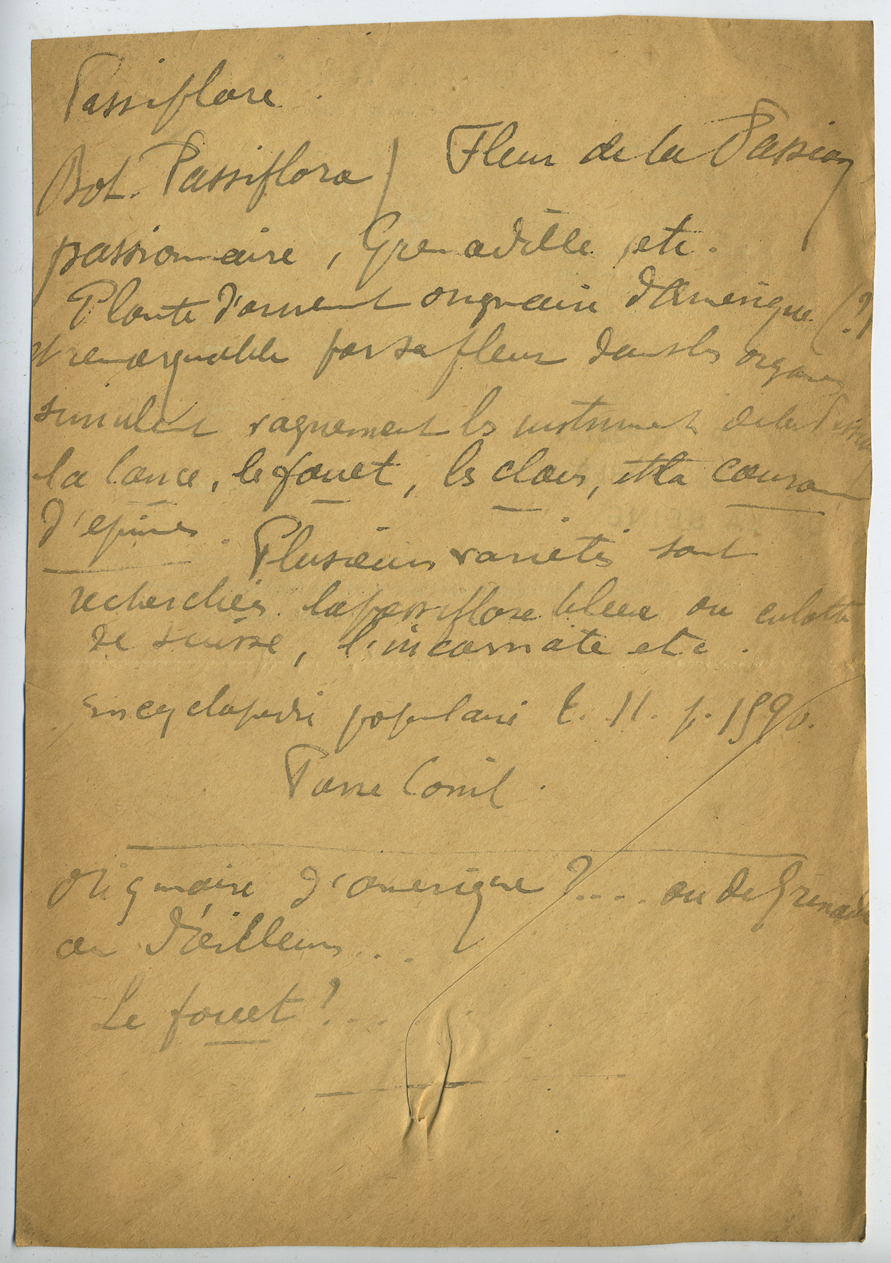 Passiflore.
Bot. Passiflora / Fleur de la Passion
passionnaire, Grenadille, etc.
Plante d'ornement originaire d'Amérique (?)
et remarquable par sa fleur dans les organes
simulent vaguement les instruments de la Passion
la lance, le fouet, les clous, et la couronne
d'épines. Plusieurs variétés sont
recherchées. la passiflore bleue ou culotte
de suisse, l'incarnate etc.
Encyclopédie populaire t. 11. p. 1590.
Pierre Conil.
Originaire d'Amérique ?.... ou de Grenade
ou d'ailleurs...
Le fouet ?...